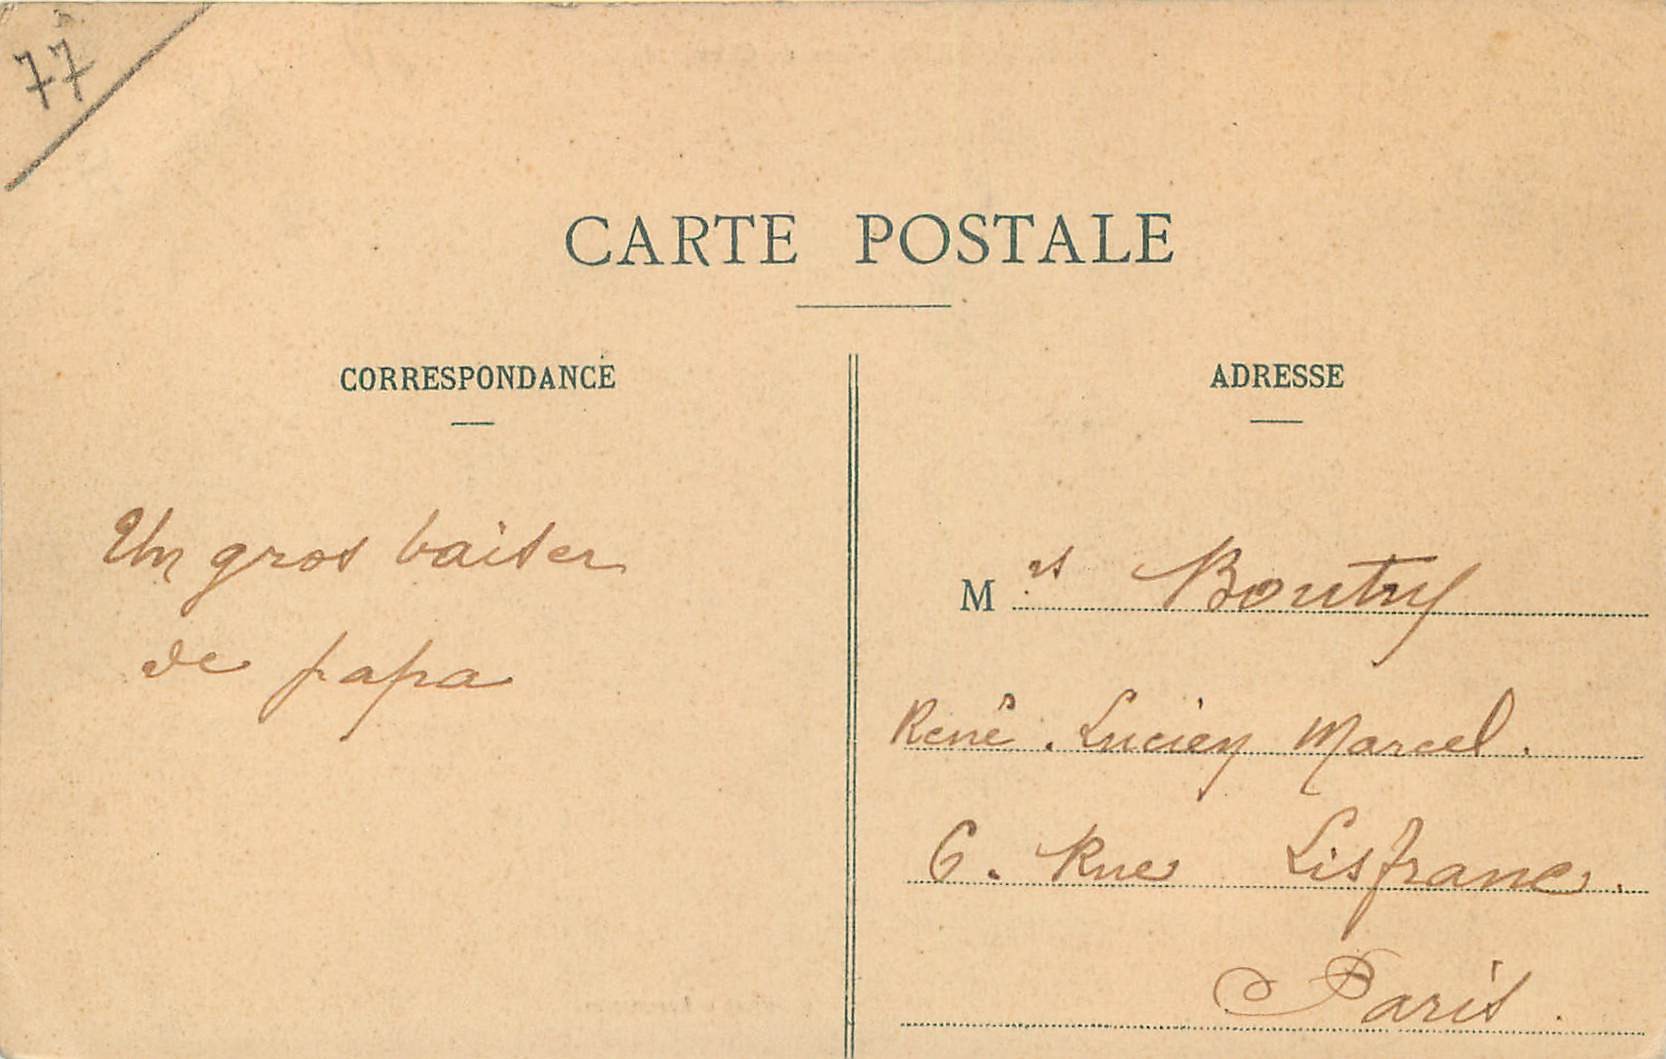 77
CARTE POSTALE
CORRESPONDANCE
Un gros baiser
de papa
ADRESSE
Mrs Boutry
René. Lucien Marcel.
6. Rue Lisfranc.
Paris.